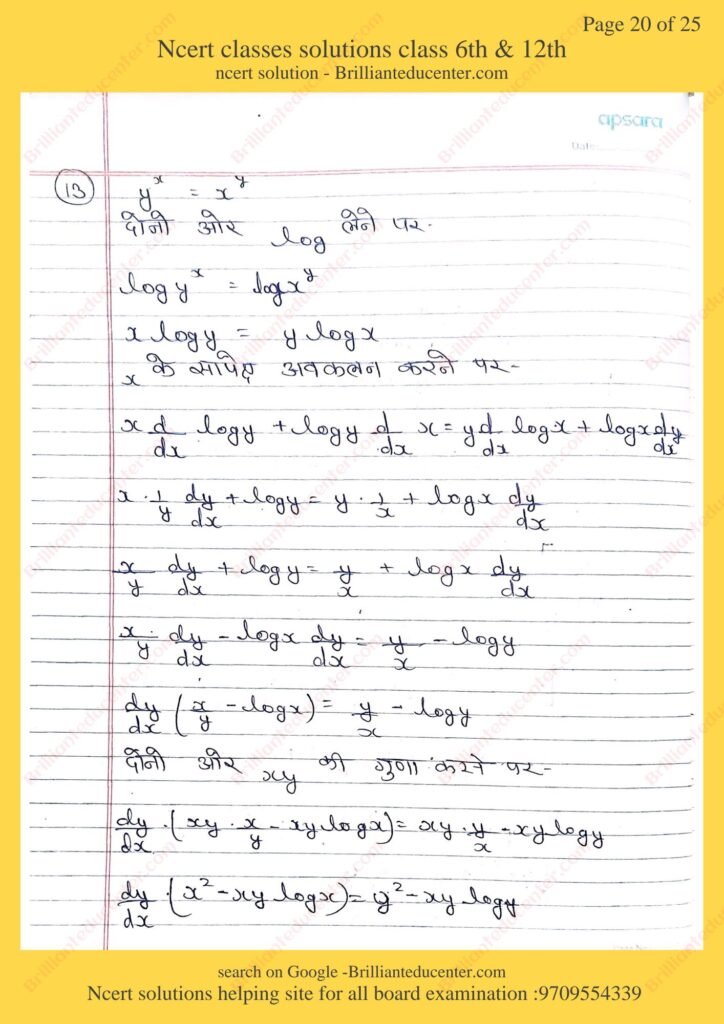 Page 20 of 25
Ncert classes solutions class 6th & 12th
ncert solution - Brillianteducenter.com
apsara
Date
13
y^x = x^y
दोनों ओर log लेने पर-
log y^x = log x^y
x log y = y log x
x के सापेक्ष अवकलन करने पर-
x d/dx log y + log y d/dx x = y d/dx log x + log x dy/dx
x · 1/y dy/dx + log y = y · 1/x + log x dy/dx
x/y dy/dx + log y = y/x + log x dy/dx
x/y · dy/dx - log x dy/dx = y/x - log y
dy/dx (x/y - log x) = y/x - log y
दोनों ओर xy की गुणा करने पर-
dy/dx · (xy · x/y - xy log x) = xy · y/x - xy log y
dy/dx · (x² - xy log x) = y² - xy log y
search on Google -Brillianteducenter.com
Ncert solutions helping site for all board examination :9709554339